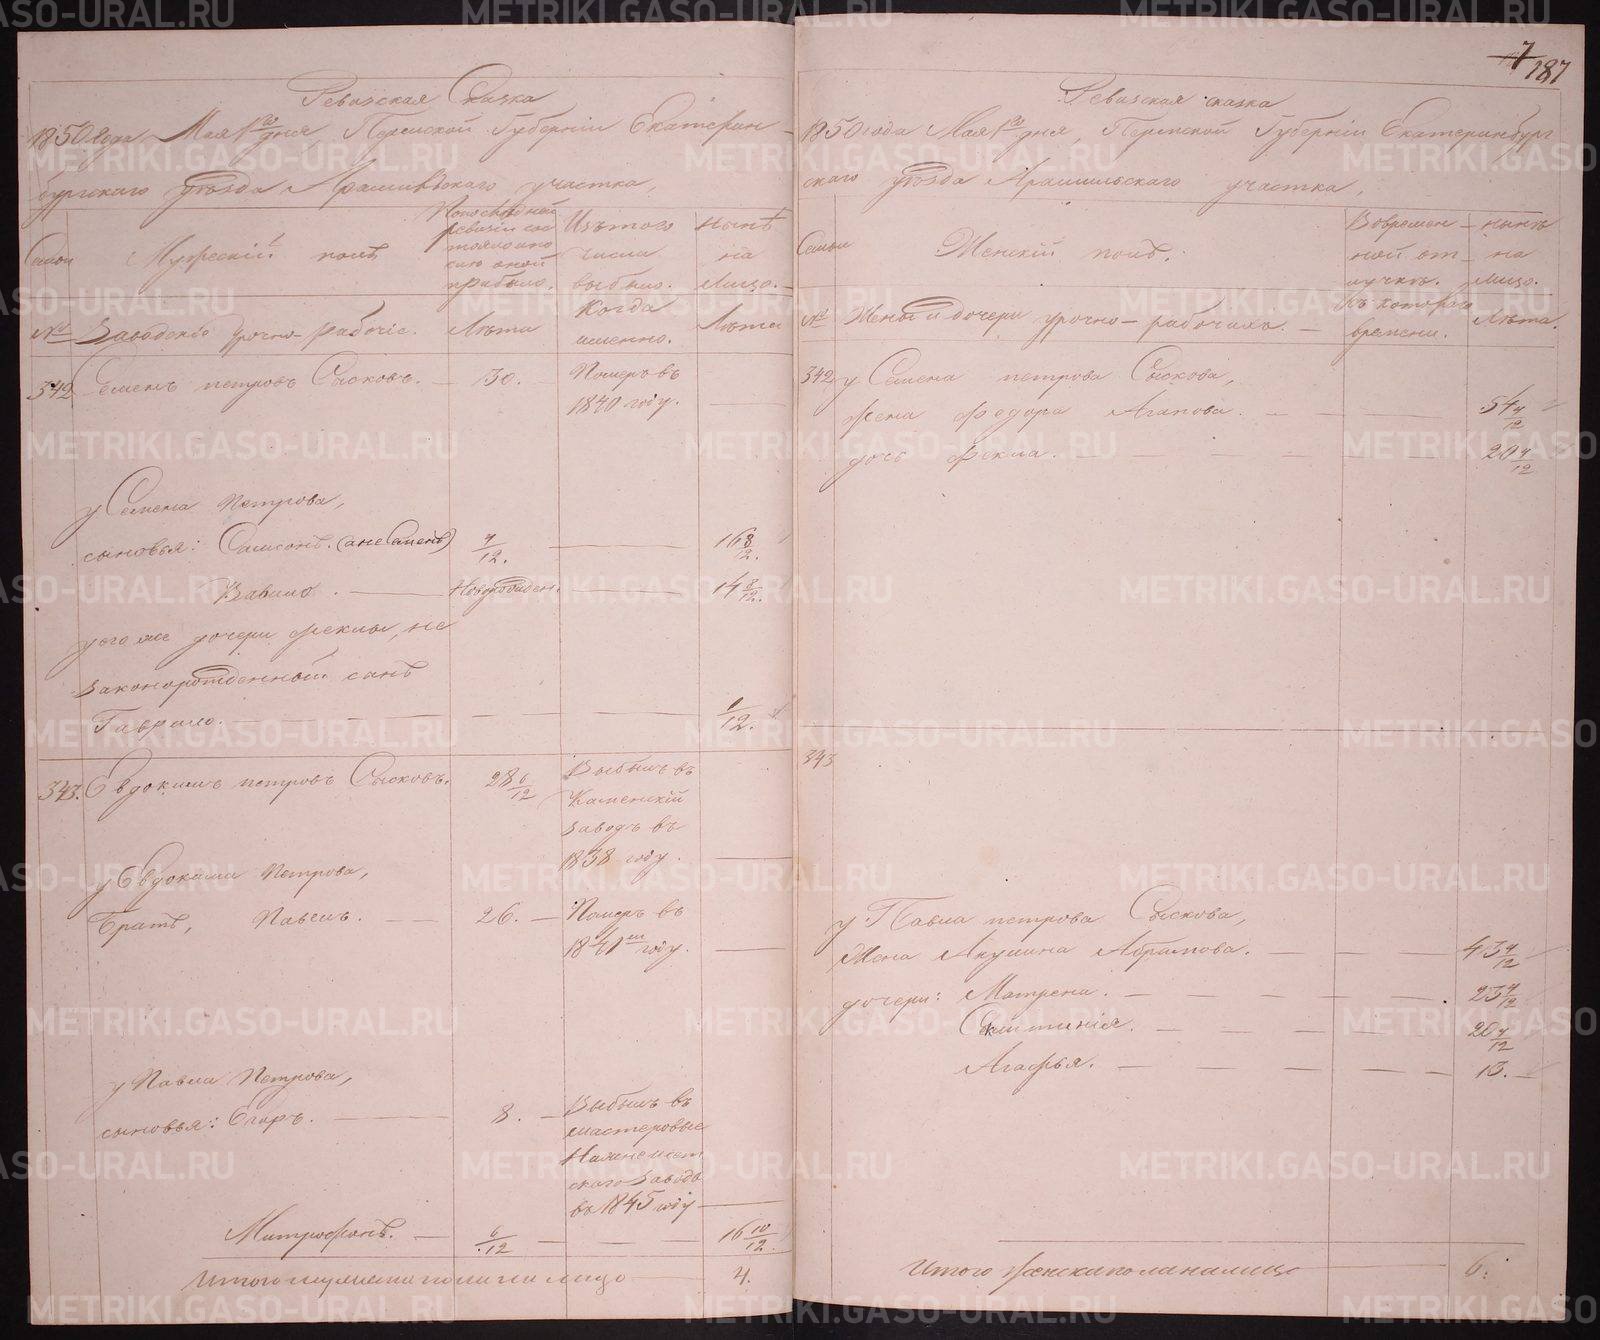 7
187
Ревизская Сказка
1850 года Мая 1го дня, Пермской Губерніи Екатерин-
бургскаго уѣзда Арамильскаго участка,
Семьи
Мужескій полъ
По послѣдней ревизіи состояло и послѣ оной прибыло.
Изъ того числа выбыло.
Нынѣ на лицо.
№
Заводскіе урочно-рабочіе.
Лѣта
Когда именно.
Лѣта
342 Семенъ петровъ Сысковъ. — 30. Померъ въ
1840 году.
у Семена Петрова,
сыновья: Самсонъ. (а не Семенъ) 4/12. 16 8/12.
Вавило. Новорожден. 14 8/12.
у его же дочери Феклы, не
законорожденной сынъ
Гаврило. 1/12.
343. Евдокимъ петровъ Сысковъ. 28 6/12 Выбылъ въ
Каменскій
заводъ въ
1838 году.
у Евдокима Петрова,
братъ, Павелъ. — 26. — Померъ въ
1841мъ году.
у Павла Петрова,
сыновья: Егоръ. 8. — Выбылъ въ
мастеровые
Нижнеисет
скаго завода
въ 1845 году
Митрофанъ. — 6/12 — 16 10/12.
Итого мужеска пола на лицо 4.
Ревизская сказка
1850 года Мая 1го дня, Пермской Губерніи Екатеринбург
скаго уѣзда Арамильскаго участка,
Семьи
Женскій полъ.
Во времен-
ной от-
лучкѣ.
нынѣ
на
лицо.
№
Жены и дочери урочно-рабочихъ. —
Съ котораго
времени.
Лѣта.
342 у Семена петрова Сыскова,
жена Федора Агапова. 54 4/12
дочь Фекла. 20 4/12
343
у Павла петрова Сыскова,
Жена Акулина Абрамова. 43 4/12
дочери: Матрена. 23 4/12
Скитинія. 20 4/12
Агафья. 13. —
Итого женска пола на лицо 6.
METRIKI.GASO-URAL.RU